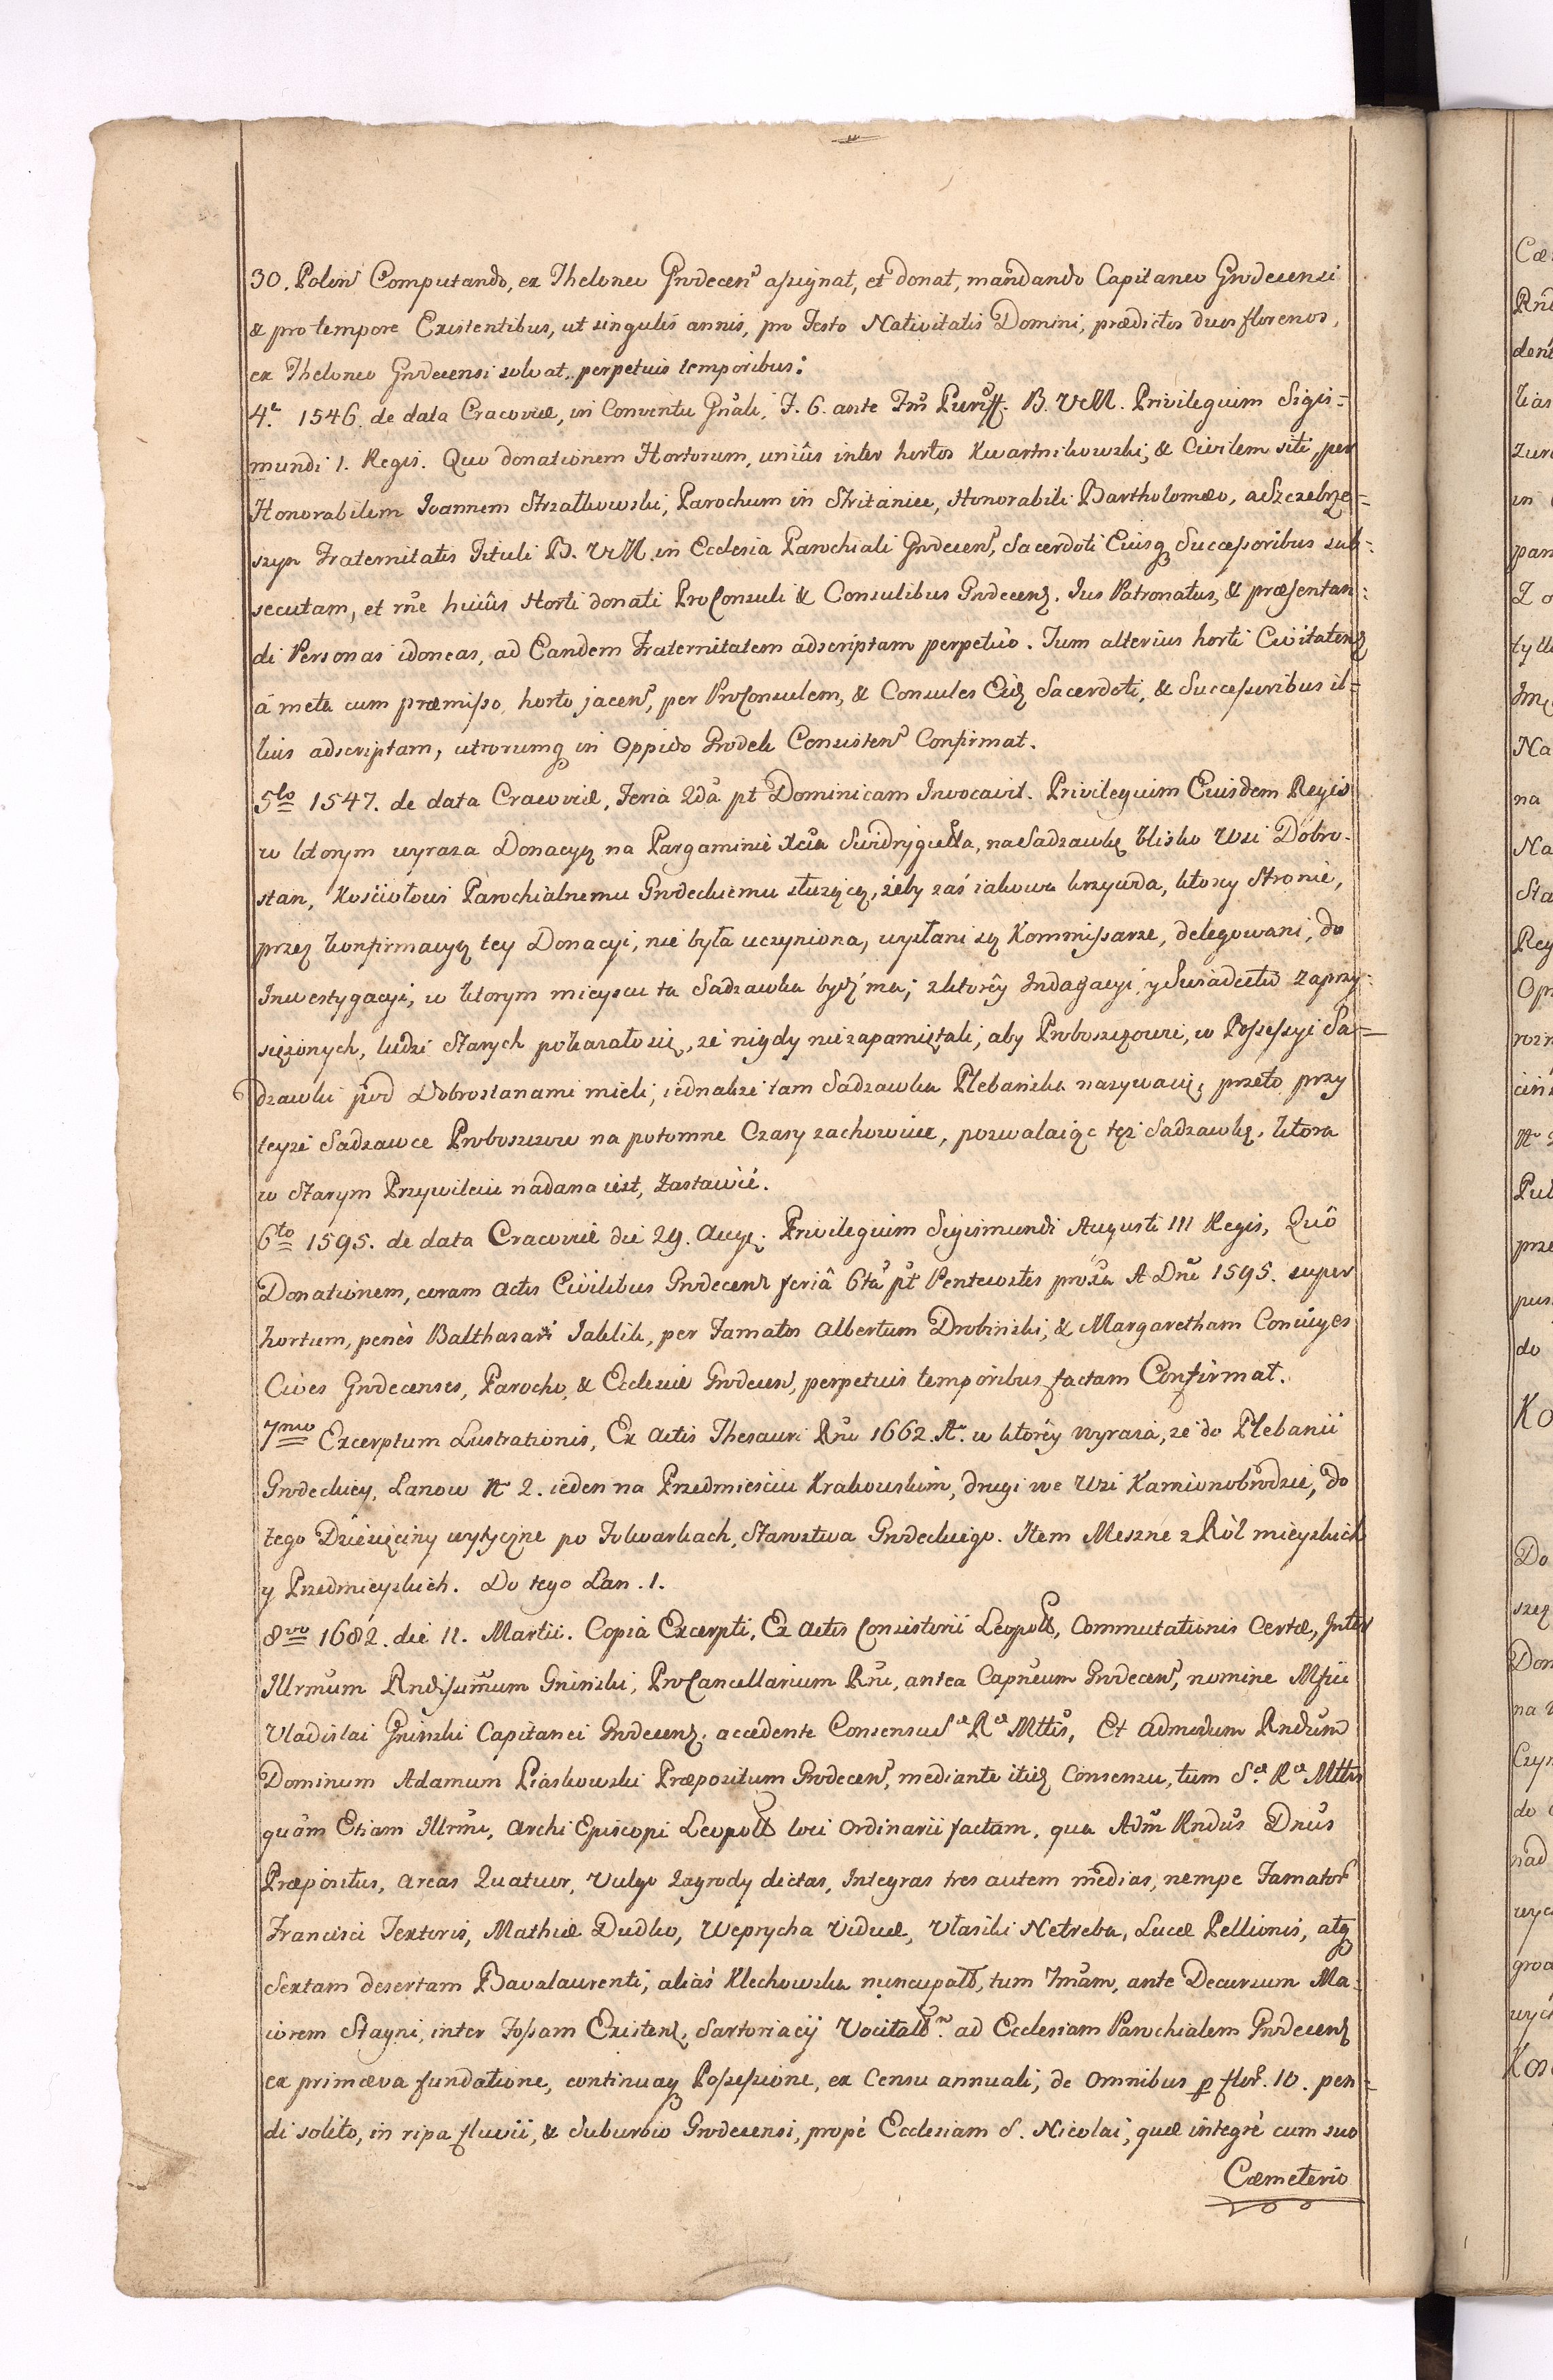 30. Polon̄ Computando, ex Theloneo Grodecen̄ assignat, et donat, mandando Capitaneo Grodecensi
& pro tempore Existentibus, ut singulis annis, pro Festo Nativitatis Domini, prædictos duos florenos,
ex Theloneo Grodecensi solvat, perpetuis temporibus:
1546. de data Cracoviæ, in Conventu Gnāli, F. 6. ante Fm̄ Puriff. B. V. M. Privilegium Sigis=
mundi 1. Regis. Quo donationem Hortorum, uniûs inter hortos Kwartnikowski, & Civilem siti, per
Honorabilem Joannem Strzałkowski, Parochum in Stritaniec, Honorabili Bartholomæo, a Szczebrze=
szyn Fraternitatis Tituli B. V. M. in Ecclesia Parochiali Grodecen̄, Sacerdoti Eiusq Successoribus sub=
secutam, et rn̄e huiûs Horti donati ProConsuli & Consulibus Grodecenȝ. Jus Patronatus, & præsentan=
di Personas idoneas, ad Eandem Fraternitatem adscriptam perpetuò. Tum alterius horti Civitatenȝ
á meta cum præmisso, horto jacen̄, per ProConsulem, & Consules Eidȝ Sacerdoti, & Successoribus il=
lius adscriptam, utrorumq in Oppido Grodek Consisten̄ Confirmat.
5to 1547. de data Cracoviæ, Feria 2da pt Dominicam Invocavit. Privilegium Eiusdem Regis
w ktorym wyraza Donacyą na Pargaminie Xcia Swidrygiełła, na Sadzawkę blisko Wsi Dobro-
stan, Kosciołowi Parochialnemu Grodeckiemu służącą, żeby zaś iakowa krzywda, ktory Stronie,
przez konfirmacyą tey Donacyi, nie była uczyniona, wysłani są Kommissarze, delegowani, do
Inwestygacyi, w ktorym mieyscu ta Sadzawka bydź ma; z ktorey Indagacyi, y Swiadectw zaprzy=
siężonych, ludzi Starych pokazało się, że nigdy nie zapamiętali, aby Proboszczowie, w Possessyi Sa=
dzawki pod Dobrostanami mieli, iednakze tam Sadzawka Plebańska nazywa się, przeto przy
teyże Sadzawce Proboszczow na potomne Czasy zachowuie, pozwalaiąc tęż Sadzawkę, ktora
w Starym Przywileiu nadana iest, Zastawić.
6to 1595. de data Cracoviæ die 29. Augȝ. Privilegium Sigismundi Augusti III Regis, Quô
Donationem, coram Actis Civilibus Grodecenȝ feriâ 6ta pt Pentecostes proxa A Dni 1595. super
hortum, penès Balthasari Jablik, per Famatos Albertum Drobinski, & Margaretham Coniuges
Cives Grodecenses, Parocho, & Ecclesiæ Grodecen̄, perpetuis temporibus factam Confirmat.
7mo Excerptum Lustrationis, Ex Actis Thesauri Rni 1662. Ao. w ktorey wyraza, że do Plebanii
Grodeckiey, Lanow N 2. ieden na Przedmiesciu Krakowskim, drugi we Wsi Kamionobrodzie, do
tego Dziesięciny wytyczne po Folwarkach, Starostwa Grodeckiego. Item Meszne z Ról mieyskich
y Przedmieyskich. Do tego Łan. 1.
8vo 1682. die 11. Martii. Copia Excerpti, Ex Actis Consistorii Leopold, Commutationis Certæ, Inter
Illrmum Rndissimum Gninski, ProCancellarium Rni, antea Capneum Grodecen̄, nomine Mfici
Vladislai Gninski Capitanei Grodecenȝ, accedente Consensu Sæ Ræ Mttis, Et Admodum Rndum
Dominum Adamum Piaskowski Præpositum Grodecen̄, mediante itidȝ Consensu, tum Sæ Ræ Mttis
quàm Etiam Illrmi, Archi Episcopi Leopold loci Ordinarii factam, qua Adm Rndus Dnus
Præpositus, Areas Quatuor, Vulgo Zagrody dictas, Integras tres autem medias, nempe Famator
Francisci Textoris, Mathiæ Dudko, Weprycha Viduæ, Vłasiki Netreba, Lucæ Pellionis, atq
Sextam desertam Bavalaurenti, aliàs Klechowska nuncupatā, tum 7mam, ante Decursum Ma=
iorem Stagni, inter Fossam Existenȝ, Sartoriacij Vocitatā ad Ecclesiam Parochialem Grodecenȝ
ex primæva fundatione, continuaq Possessione, ex Censu annuali, de omnibus p flor. 10. pen=
di solito, in ripa fluvii, & Suburbio Grodecensi, propè Ecclesiam S. Nicolai, quæ integrè cum suo
Cæmeterio